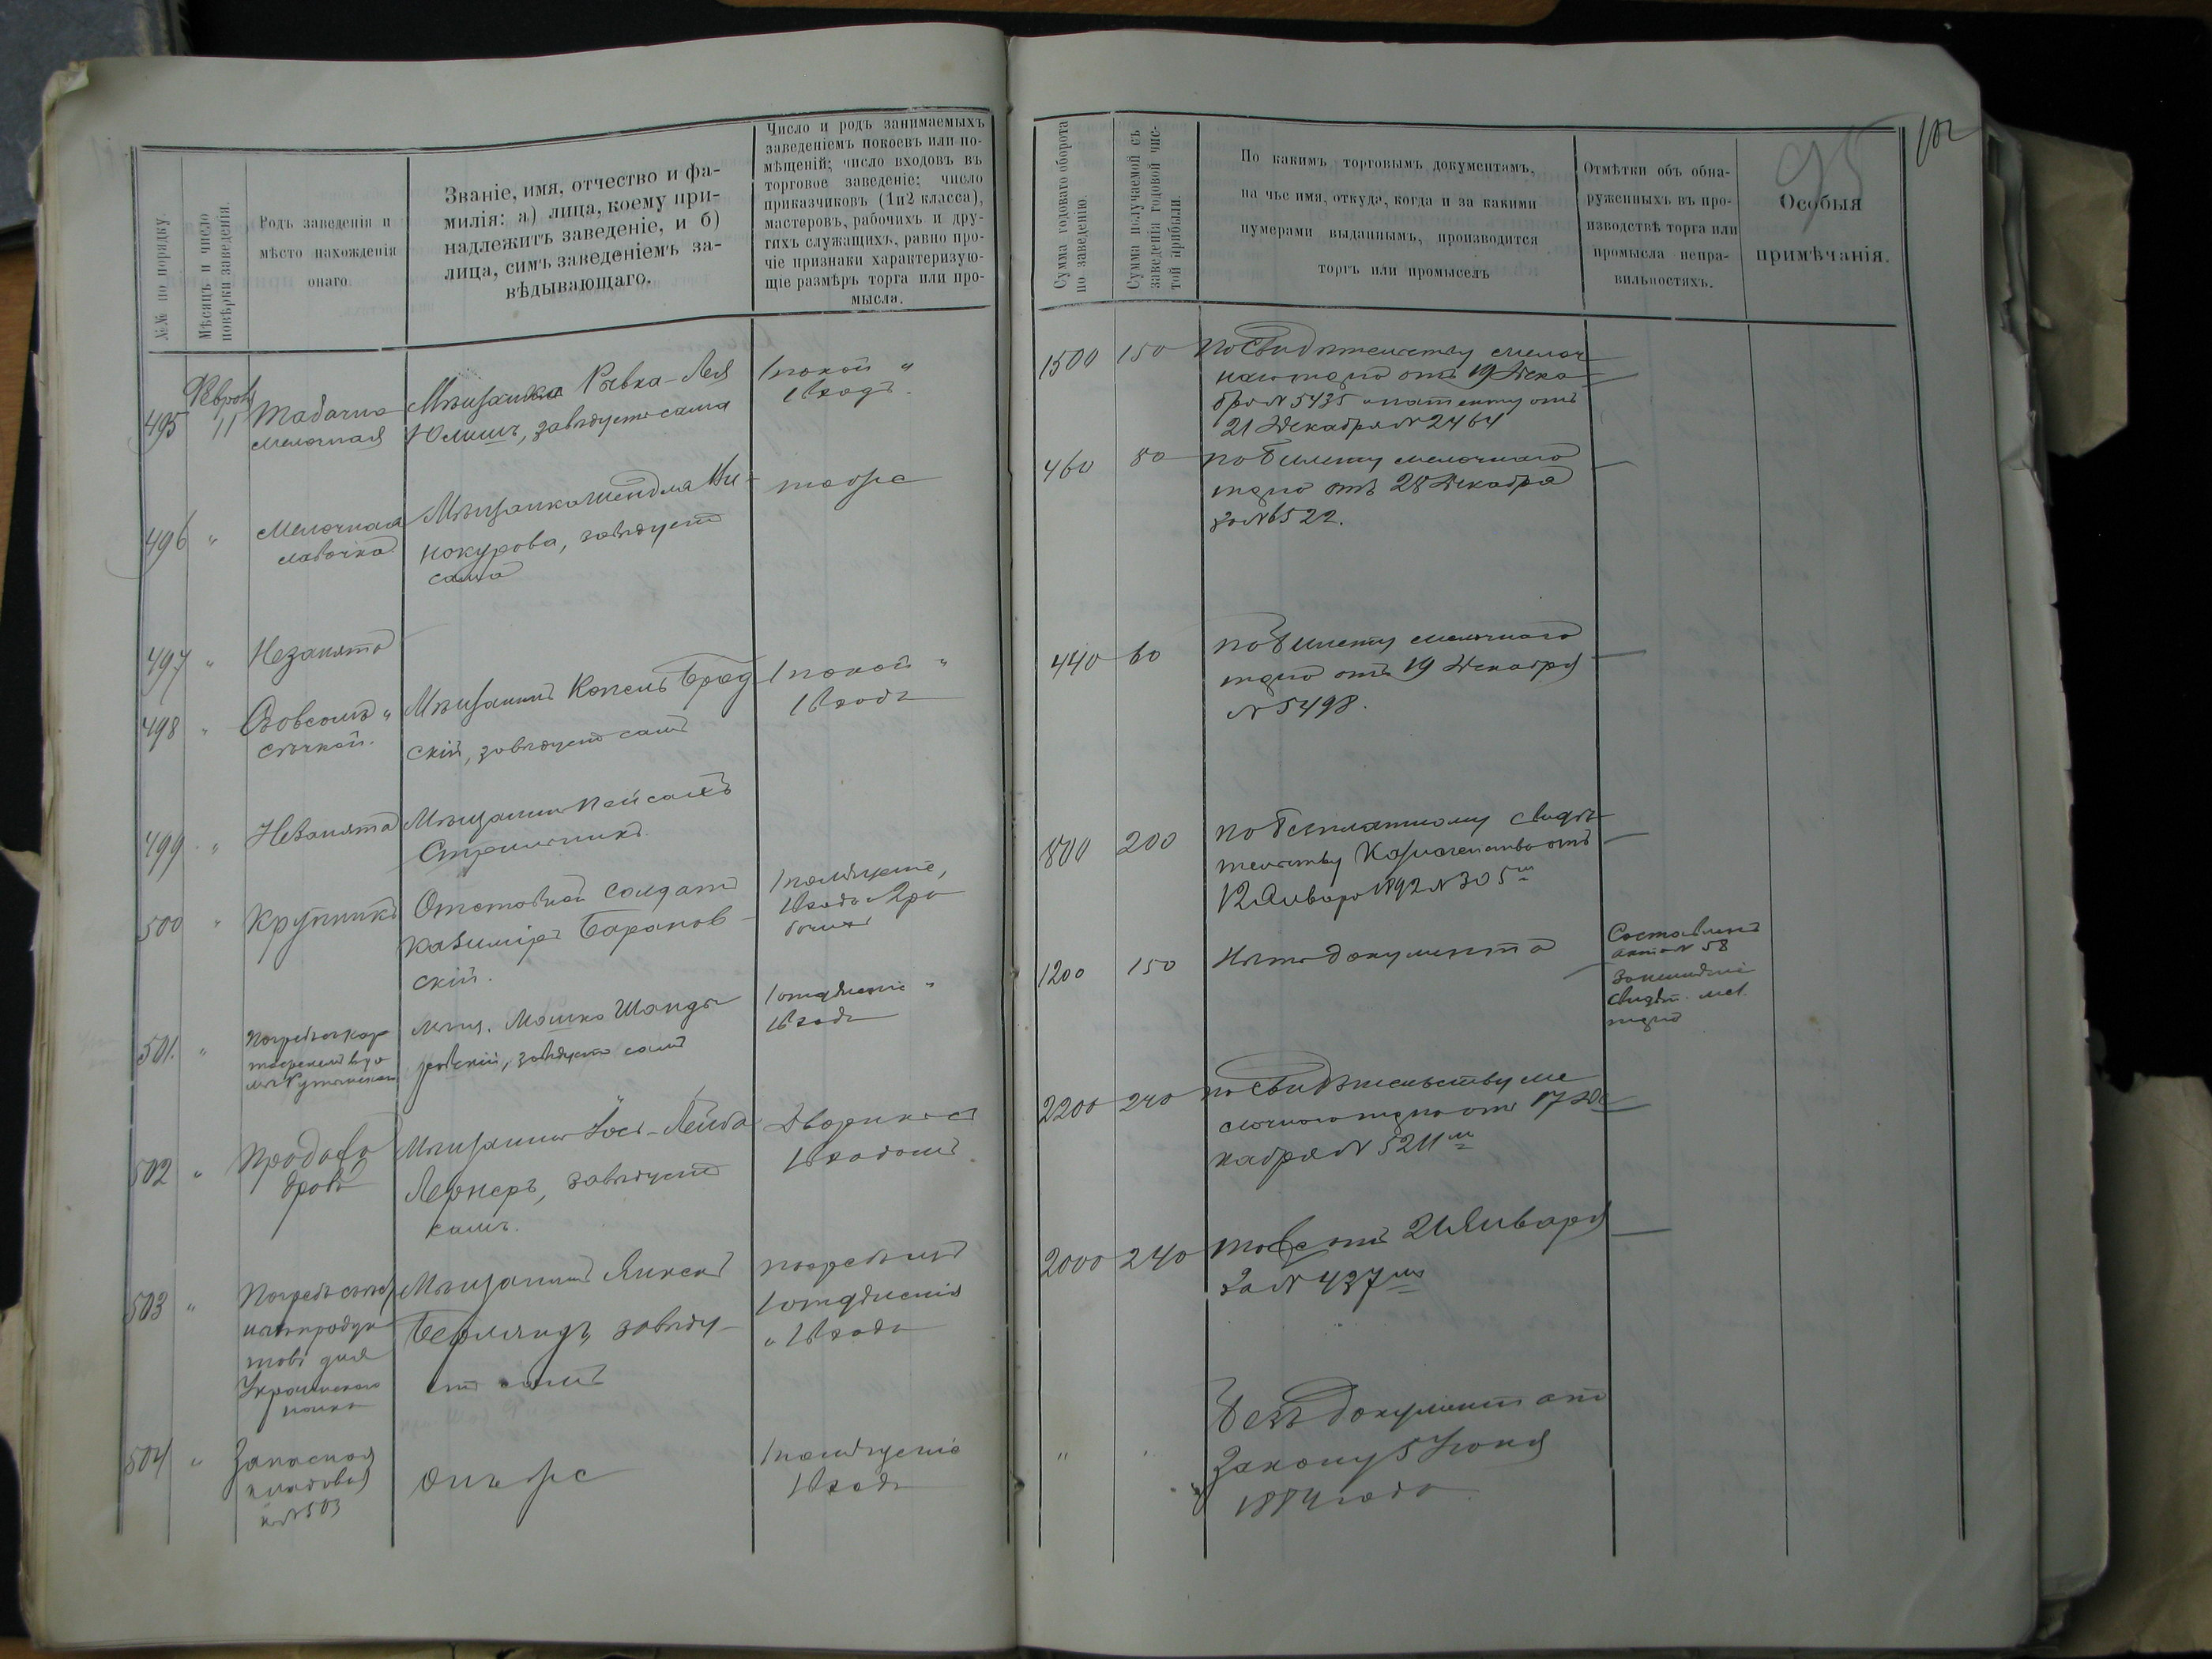 №№ по порядку.
Мѣсяцъ и число
повѣрки заведенія.
Родъ заведенія и
мѣсто нахожденія
онаго.
Званіе, имя, отчество и фа-
милія: а) лица, коему при-
надлежитъ заведеніе, и б)
лица, симъ заведеніемъ за-
вѣдывающаго.
Число и родъ занимаемыхъ
заведеніемъ покоевъ или по-
мѣщеній; число входовъ въ
торговое заведеніе; число
приказчиковъ (1и2 класса),
мастеровъ, рабочихъ и дру-
гихъ служащихъ, равно про-
чіе признаки характеризую-
щіе размѣръ торга или про-
мысла.
495
11
Табачно
мелочная
Мѣщанка Рывка-Лея
Юлишъ, завѣдуетъ сама
1 покой и
1 входъ.
496 "
Мелочная
лавочка
Мѣщанка Шейдля Ви-
нокурова, завѣдуетъ
сама
тоже
497 "
Не занята
498 "
Съ овсомъ и
сѣчкой.
Мѣщанинъ Копель Брод
скій, завѣдуетъ самъ
1 покой и
1 входъ
499 "
Не занята
Мѣщанинъ Пейсахъ
500 "
Крупникъ
Отставной солдатъ
Казиміръ Баранов-
скій.
1 помѣщеніе,
1 входъ и 2 ра
бочихъ
501. "
Погребъ съ кар
тофелемъ въ до
мѣ
Мѣщ. Мошко Шанды
ровскій, завѣдуетъ самъ
1 отдѣленіе и
1 входъ
502 "
Продажа
дровъ
Мѣщанинъ Іось-Лейба
Лернеръ, завѣдуетъ
самъ.
Дворикъ съ
1 входомъ
503 "
Погребъ
продук
товъ для
Украинскаго
полка
Мѣщанинъ Янкель
Берландъ, завѣду-
етъ самъ
погребъ изъ
1 отдѣленія
и 1 входъ
504 "
Запасная
кладовая
къ № 503
Онъ же
1 помѣщеніе
1 входъ
102
95
Сумма годоваго оборота
по заведенію.
Сумма получаемой съ
заведенія годовой чис-
той прибыли.
По какимъ торговымъ документамъ,
на чье имя, откуда, когда и за какими
нумерами выданнымъ, производится
торгъ или промыселъ
Отмѣтки объ обна-
руженныхъ въ про-
изводствѣ торга или
промысла непра-
вильностяхъ.
Особыя
примѣчанія.
1500 150
по свидѣтельству мелоч
наго торга отъ 19 Дека
бря № 5435 и патенту отъ
21 Декабря № 2464
460 80
по билету мелочнаго
торга отъ 28 Декабря
за № 6522.
440 60
по билету мелочнаго
торга отъ 19 Декабря
№ 5498.
800 200
по безплатному свидѣ
тельству Казначейства отъ
12 Января 1892 № 305
1200 150
Нѣтъ документа
Составленъ
актъ № 58
за неимѣніе
свидѣт. мел.
торга
2200 240
по свидѣтельству ме
лочнаго торга отъ 17 Де
кабря № 5211
2000 240
тоже отъ 21 Января
за № 437
" "
Безъ документа по
Закону 5 Іюня
1884 года.